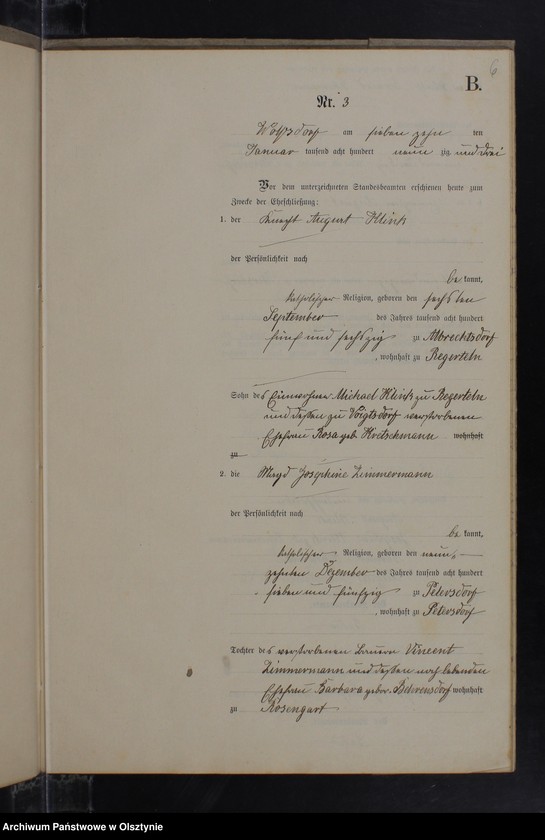 6
B.
Nr. 3
Wolfsdorf am sieben zehn ten
Januar tausend acht hundert neun zig und drei
Vor dem unterzeichneten Standesbeamten erschienen heute zum
Zwecke der Eheschließung:
1. der Knecht August Klink
der Persönlichkeit nach
be kannt,
katholischer Religion, geboren den sechsten
September des Jahres tausend acht hundert
fünf und sechszig zu Albrechtsdorf
, wohnhaft zu Regerteln
Sohn des Einwohner Michael Klink zu Regerteln
und dessen zu Voigtsdorf verstorbenen
Ehefrau Rosa geb. Kretschmann wohnhaft
zu
2. die Magd Josephine Zimmermann
der Persönlichkeit nach
be kannt,
katholischer Religion, geboren den neun-
zehnten Dezember des Jahres tausend acht hundert
sieben und fünfzig zu Petersdorf
, wohnhaft zu Petersdorf
Tochter des verstorbenen Bauern Vincent
Zimmermann und dessen noch lebenden
Ehefrau Barbara gebor. Behrendorf wohnhaft
zu Rosengart
Archiwum Państwowe w Olsztynie